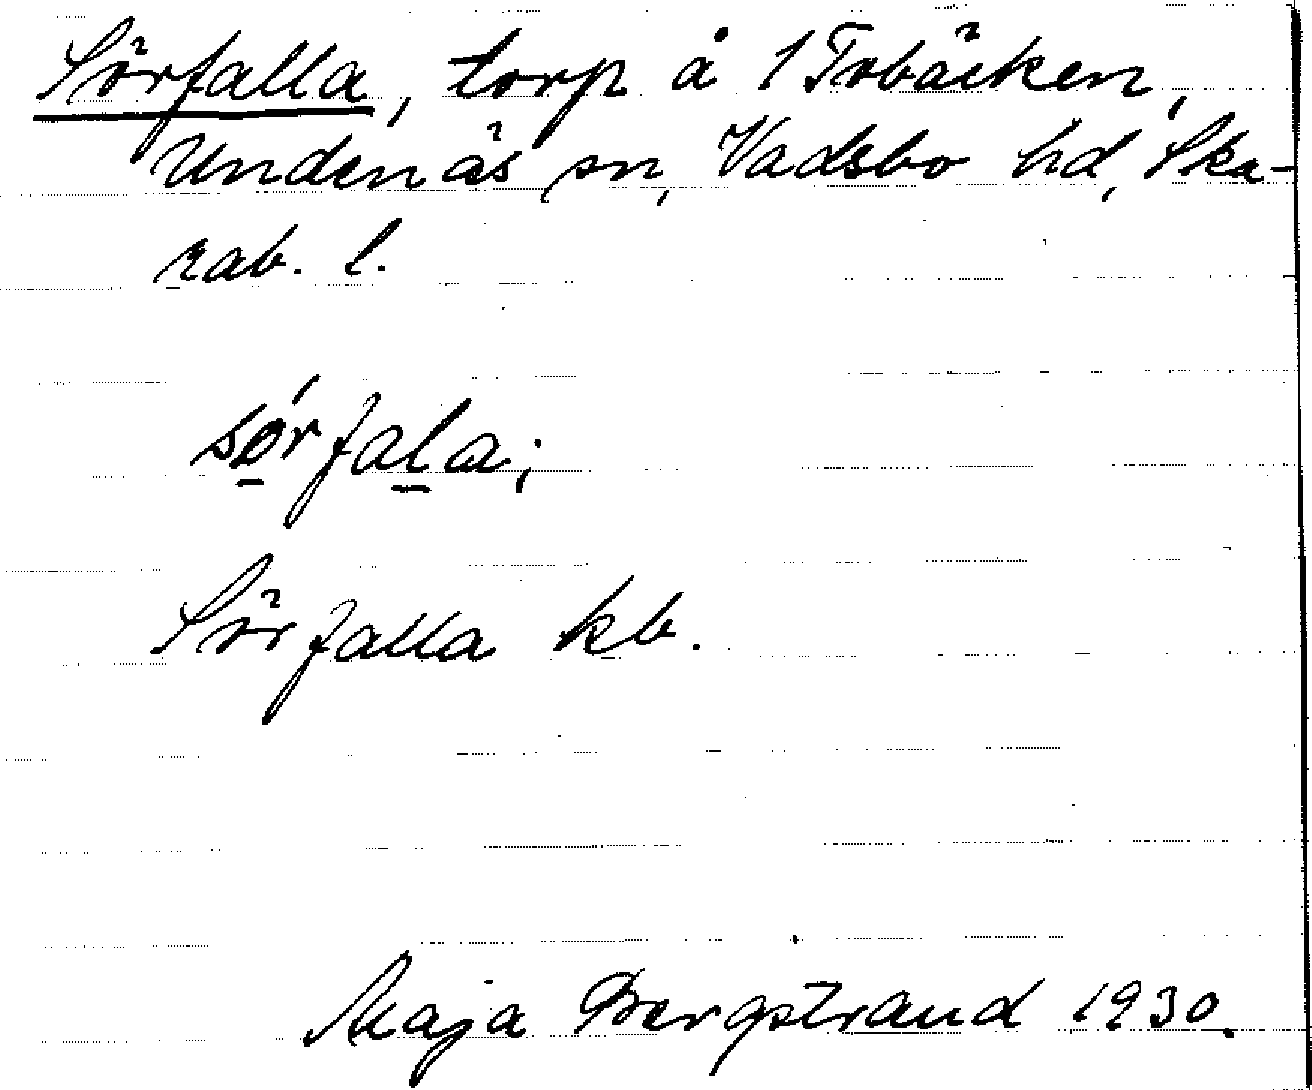 Sörfalla, torp å 1 Tvbäcken,
Undenäs sn, Vadsbo hd, Ska-
rab. l.
sǿ̱rfaḻa;
Sörfalla kb.
Maja Bergstrand 1930.